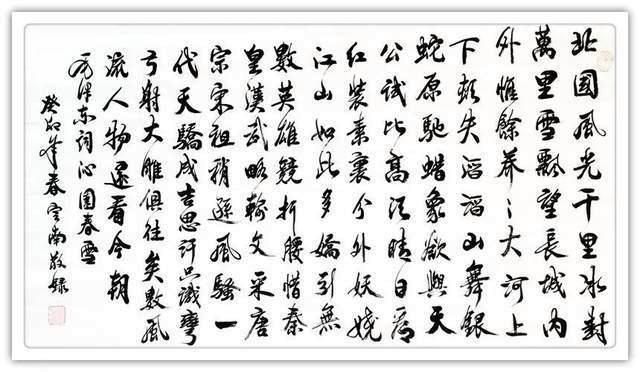 北國風光千里冰封
萬里雪飄望長城内
外惟餘莽〻大河上
下頓失滔滔山舞銀
蛇原馳蠟象欲與天
公試比高須晴日看
紅裝素裹分外妖嬈
江山如此多嬌引無
數英雄競折腰惜秦
皇漢武略輸文采唐
宗宋祖稍遜風騷一
代天驕成吉思汗只識彎
弓射大雕俱往矣數風
流人物還看今朝
毛澤東詞沁園春雪
癸卯年春雲南敬録